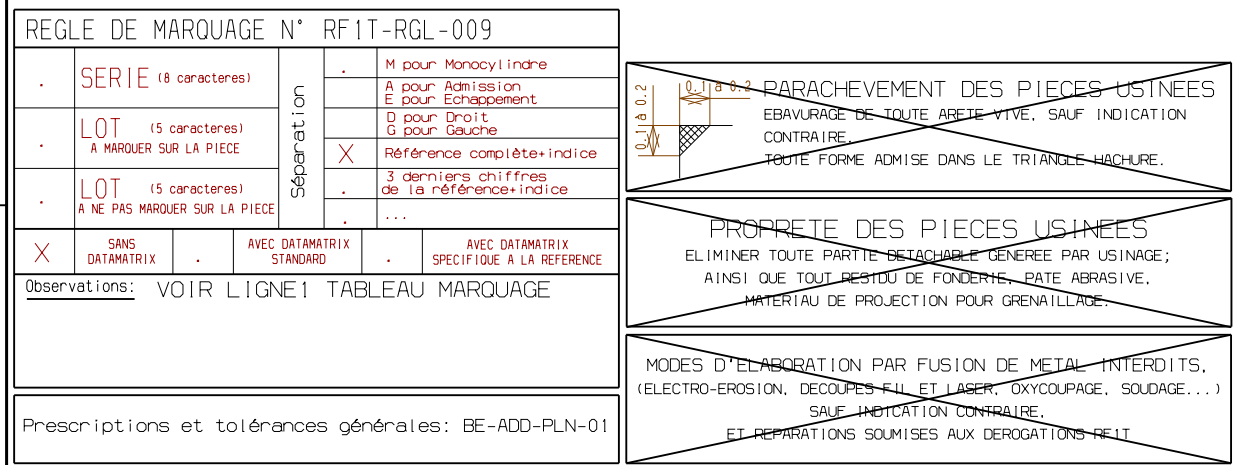 REGLE DE MARQUAGE N° RF1T-RGL-009
. SERIE (8 caracteres)
. LOT (5 caracteres)
A MARQUER SUR LA PIECE
. LOT (5 caracteres)
A NE PAS MARQUER SUR LA PIECE
Séparation
. M pour Monocylindre
A pour Admission
E pour Echappement
D pour Droit
G pour Gauche
X Référence complète+indice
. 3 derniers chiffres
de la référence+indice
. ...
X SANS
DATAMATRIX
. AVEC DATAMATRIX
STANDARD
. AVEC DATAMATRIX
SPECIFIQUE A LA REFERENCE
Observations: VOIR LIGNE1 TABLEAU MARQUAGE
Prescriptions et tolérances générales: BE-ADD-PLN-01
0.1 à 0.2
0.1 à 0.2
PARACHEVEMENT DES PIECES USINEES
EBAVURAGE DE TOUTE ARETE VIVE, SAUF INDICATION
CONTRAIRE.
TOUTE FORME ADMISE DANS LE TRIANGLE HACHURE.
PROPRETE DES PIECES USINEES
ELIMINER TOUTE PARTIE DETACHABLE GENEREE PAR USINAGE;
AINSI QUE TOUT RESIDU DE FONDERIE, PATE ABRASIVE,
MATERIAU DE PROJECTION POUR GRENAILLAGE.
MODES D'ELABORATION PAR FUSION DE METAL INTERDITS,
(ELECTRO-EROSION, DECOUPES FIL ET LASER, OXYCOUPAGE, SOUDAGE...)
SAUF INDICATION CONTRAIRE,
ET REPARATIONS SOUMISES AUX DEROGATIONS RF1T